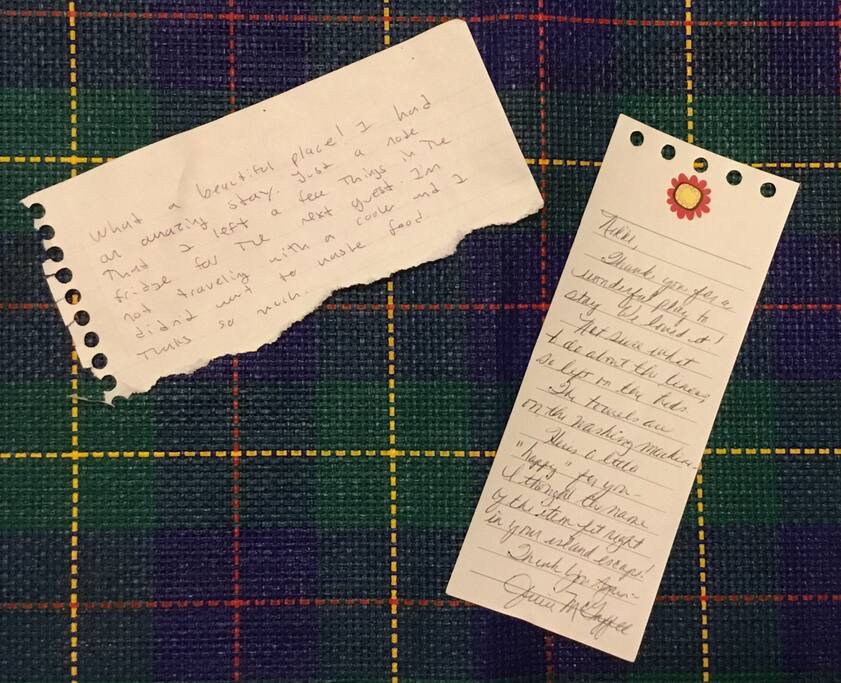 What a beautiful place! I had
an amazing stay. Just a note
that I left a few things in the
fridge for the next guest. I'm
not traveling with a cooler and I
didn't want to waste food.
Thanks so much.
Nikki,
Thank you for a
wonderful place to
stay. We loved it!
Not sure what
to do about the linens,
so left on the beds.
The towels are
on the washing machine.
Here's a little
"happy" for you-
I thought the name
of the item fit right
in your island escape!
Thank You Again-